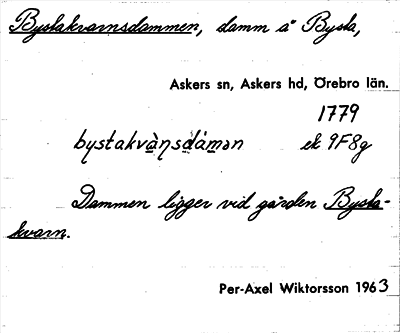 Bystakvarnsdammen, damm å Bysta,
Askers sn, Askers hd, Örebro län.
1779
bystakvà̱ṇṣdámən ek 9F8g
Dammen ligger vid gården Bysta-
kvarn.
Per-Axel Wiktorsson 1963